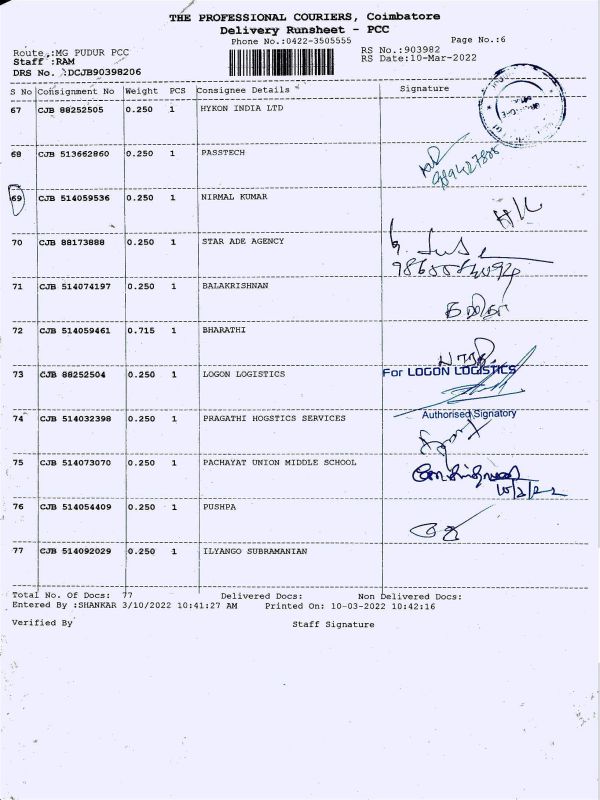 THE PROFESSIONAL COURIERS, Coimbatore
Delivery Runsheet - PCC
Phone No.:0422-3505555 Page No.:6
Route :MG PUDUR PCC RS No.:903982
Staff :RAM RS Date:10-Mar-2022
DRS No. :DCJB90398206
S No Consignment No Weight PCS Consignee Details Signature
67 CJB 88252505 0.250 1 HYKON INDIA LTD
68 CJB 513662860 0.250 1 PASSTECH
69 CJB 514059536 0.250 1 NIRMAL KUMAR
70 CJB 88173888 0.250 1 STAR ADE AGENCY
71 CJB 514074197 0.250 1 BALAKRISHNAN
72 CJB 514059461 0.715 1 BHARATHI
73 CJB 88252504 0.250 1 LOGON LOGISTICS
For LOGON LOGISTICS
Authorised Signatory
74 CJB 514032398 0.250 1 PRAGATHI HOGSTICS SERVICES
75 CJB 514073070 0.250 1 PACHAYAT UNION MIDDLE SCHOOL
10/3/22
76 CJB 514054409 0.250 1 PUSHPA
77 CJB 514092029 0.250 1 ILYANGO SUBRAMANIAN
Total No. Of Docs: 77 Delivered Docs: Non Delivered Docs:
Entered By :SHANKAR 3/10/2022 10:41:27 AM Printed On: 10-03-2022 10:42:16
Verified By Staff Signature